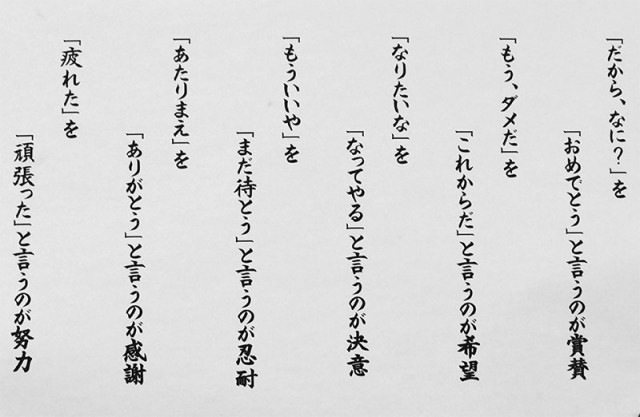 「だから、なに？」を
「おめでとう」と言うのが賞賛
「もう、ダメだ」を
「これからだ」と言うのが希望
「なりたいな」を
「なってやる」と言うのが決意
「もういいや」を
「まだ待とう」と言うのが忍耐
「あたりまえ」を
「ありがとう」と言うのが感謝
「疲れた」を
「頑張った」と言うのが努力